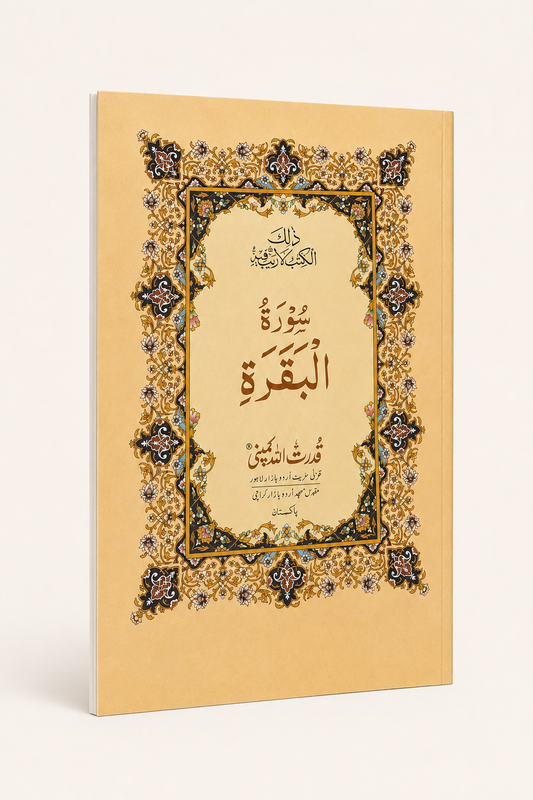 ذٰلِكَ
الْكِتٰبُ لَا رَيْبَ فِيْهِ
سُوْرَةُ
الْبَقَرَةِ
قُدرت اللہ کمپنی ®
غزنی سٹریٹ اُردو بازار لاہور
مقدس مسجد اُردو بازار کراچی
پاکستان